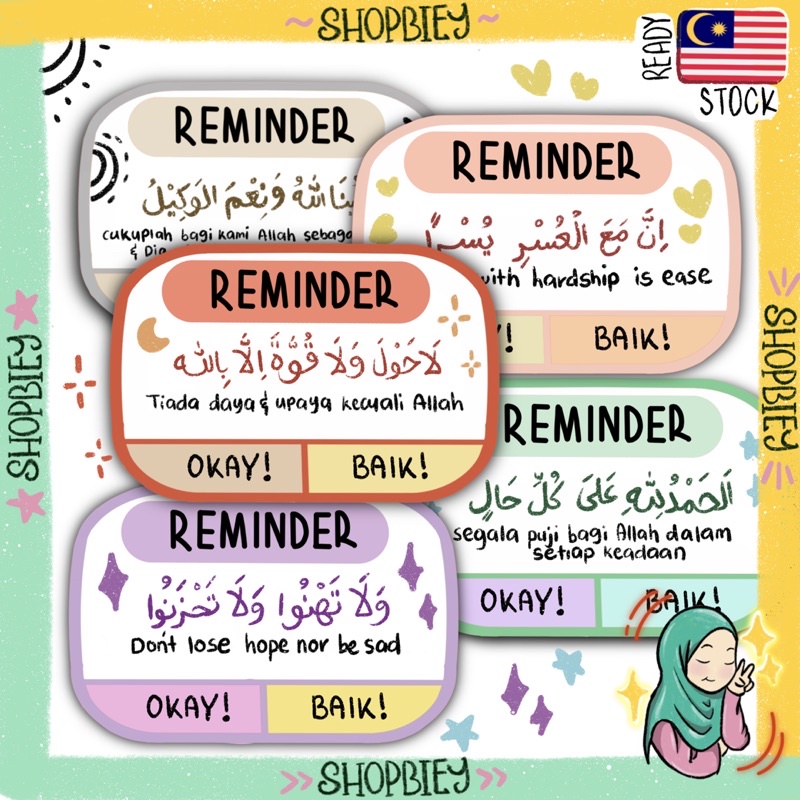 SHOPBIEY
READY
STOCK
REMINDER
اللهُ وَنِعْمَ الْوَكِيْلُ
cukuplah bagi kami Allah
& Dia
REMINDER
اِنَّ مَعَ الْعُسْرِ يُسْرًا
with hardship is ease
BAIK!
REMINDER
لَاحَوْلَ وَلَا قُوَّةَ اِلَّا بِاللهِ
Tiada daya & upaya kecuali Allah
OKAY!
BAIK!
REMINDER
اَلْحَمْدُلِلهِ عَلَى كُلِّ حَالٍ
segala puji bagi Allah dalam
setiap keadaan
OKAY!
BAIK!
REMINDER
وَلَا تَهْنُوا وَلَا تَحْزَنُوا
Don't lose hope nor be sad
OKAY!
BAIK!
SHOPBIEY
SHOPBIEY
SHOPBIEY